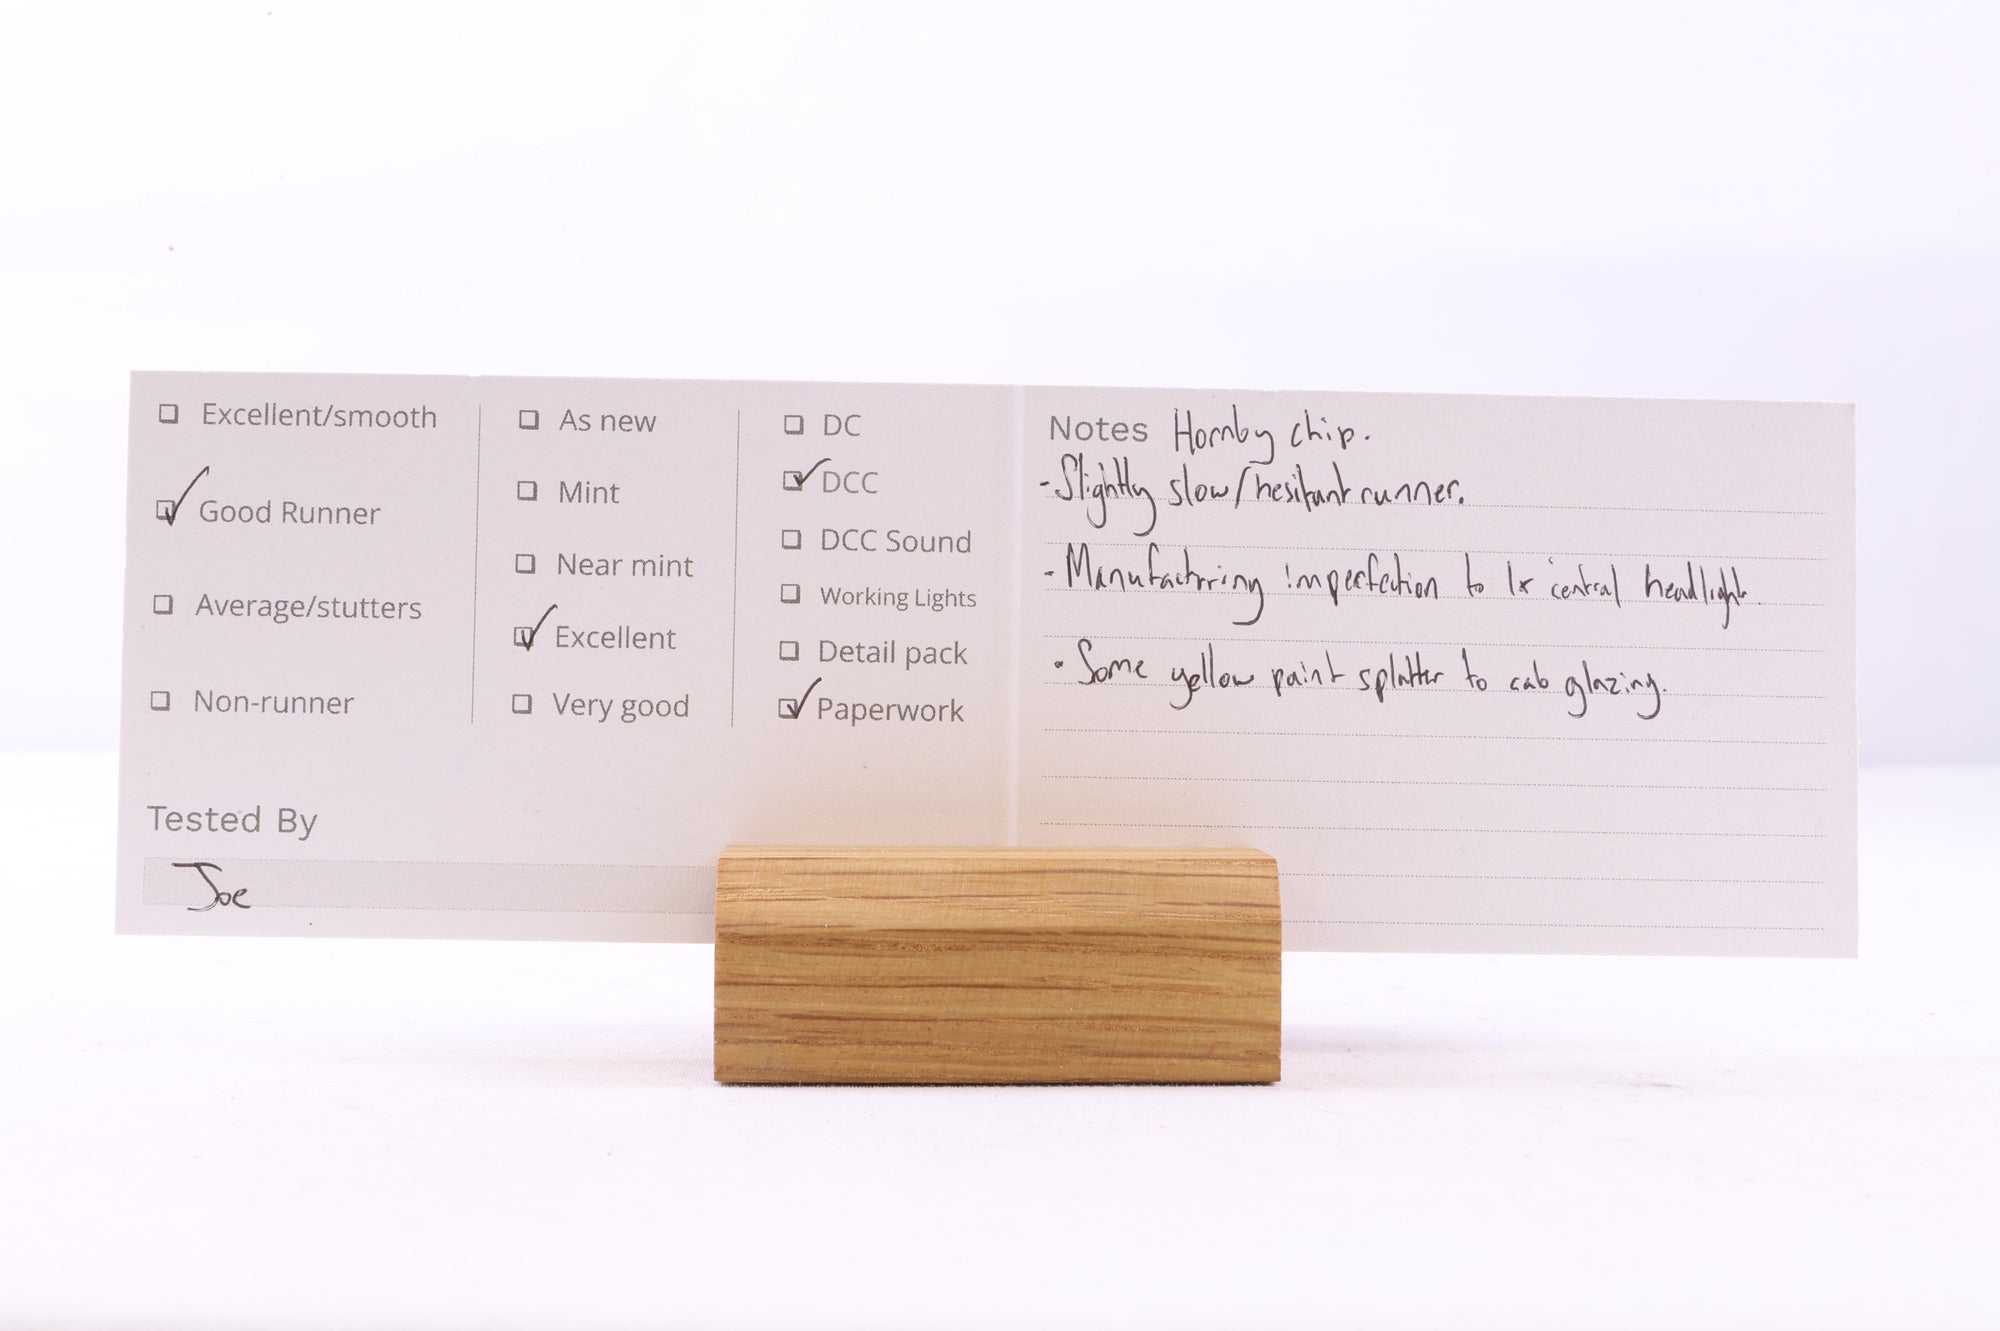 ☐ Excellent/smooth
☑ Good Runner
☐ Average/stutters
☐ Non-runner
☐ As new
☐ Mint
☐ Near mint
☑ Excellent
☐ Very good
☐ DC
☑ DCC
☐ DCC Sound
☐ Working Lights
☐ Detail pack
☑ Paperwork
Tested By
Joe
Notes Hornby chip.
- Slightly slow/hesitant runner.
- Manufactrring imperfection to 1x central headlight.
- Some yellow paint splatter to cab glazing.